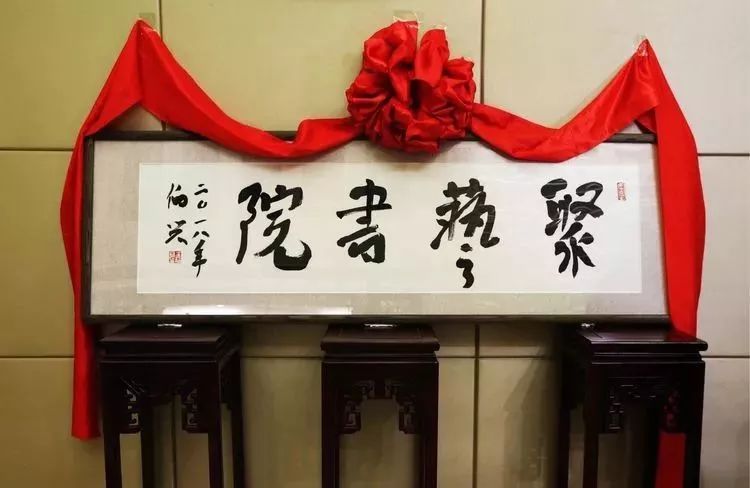 聚藝書院
二〇一八年
伯兴